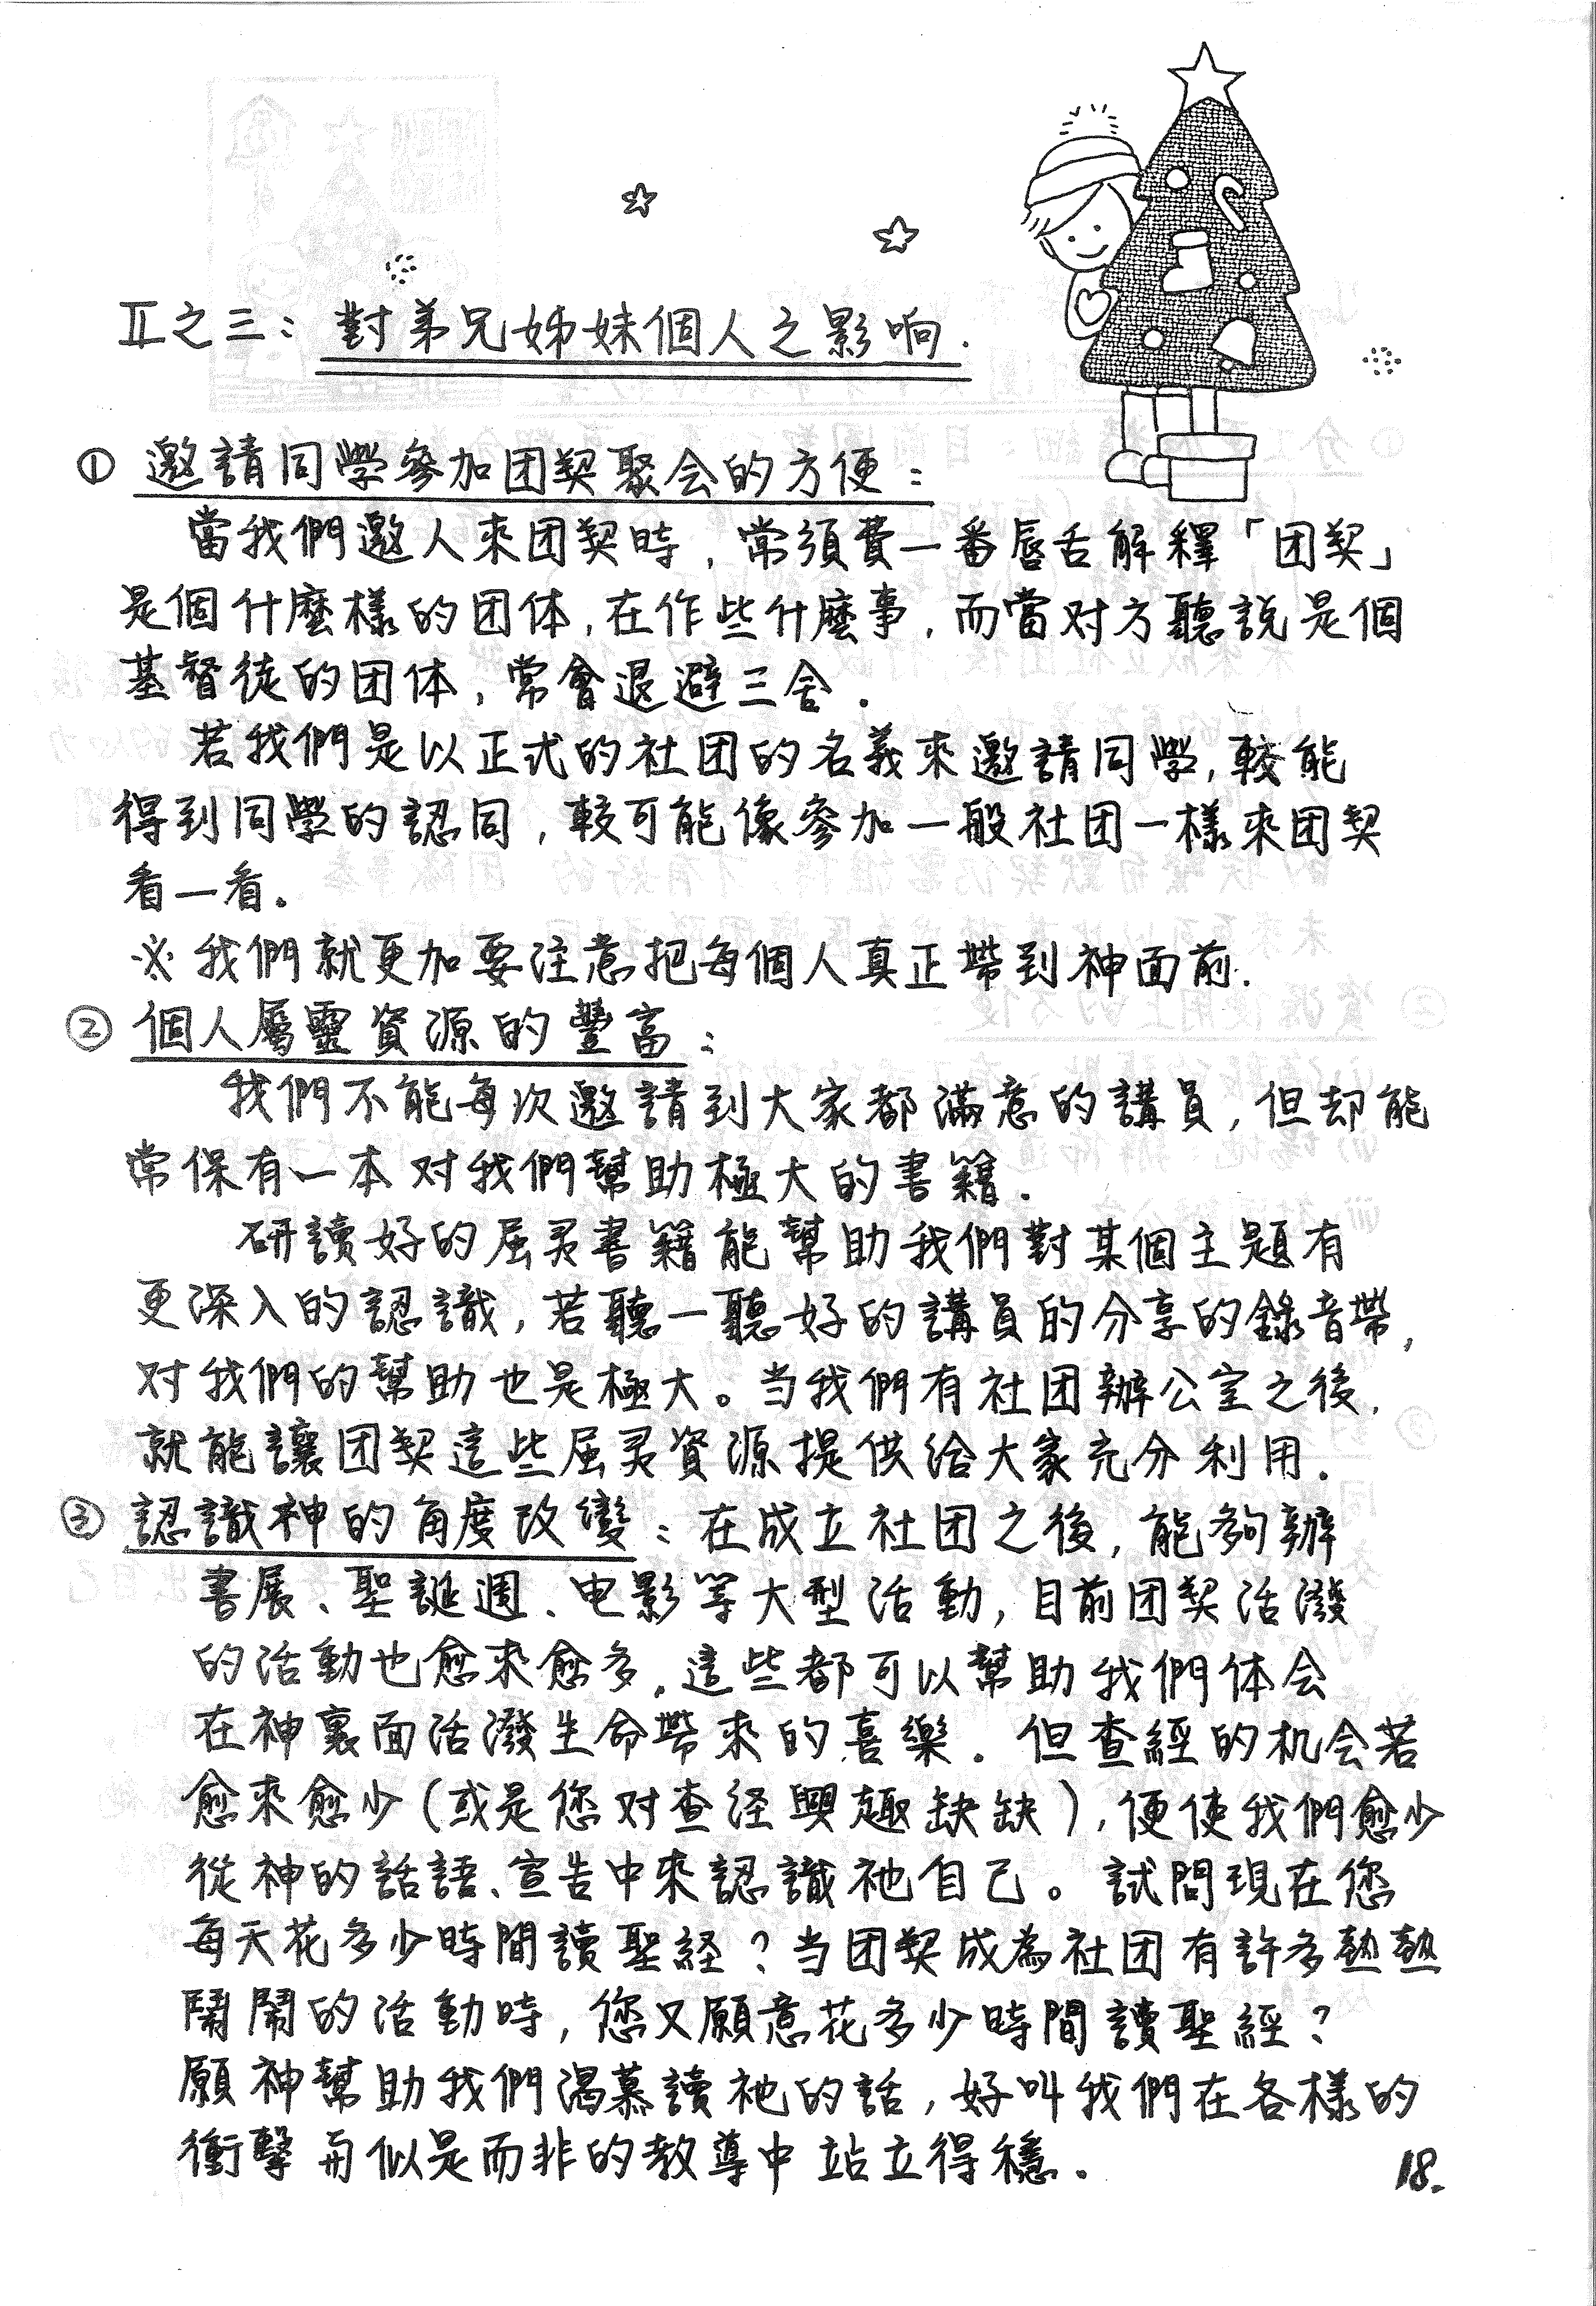 Ⅱ之三：對弟兄姊妹個人之影响．
① 邀請同學參加团契聚会的方便：
當我們邀人來团契時，常須費一番唇舌解釋「团契」
是個什麼樣的团体，在作些什麼事，而當对方聽說是個
基督徒的团体，常會退避三舍．
若我們是以正式的社团的名義來邀請同學，較能
得到同學的認同，較可能像參加一般社团一樣來团契
看一看。
※ 我們就更加要注意把每個人真正帶到神面前．
② 個人屬靈資源的豐富：
我們不能每次邀請到大家都滿意的講員，但却能
常保有一本对我們幫助極大的書籍．
研讀好的屈灵書籍能幫助我們對某個主題有
更深入的認識，若聽一聽好的講員的分享的錄音帶，
对我們的幫助也是極大。当我們有社团辦公室之後，
就能讓团契這些屈灵資源提供給大家充分利用．
③ 認識神的角度改變：在成立社团之後，能夠辦
書展、聖誕週、电影等大型活動，目前团契活潑
的活動也愈來愈多．這些都可以幫助我們体会
在神裏面活潑生命帶來的喜樂．但查經的机会若
愈來愈少（或是您对查经興趣缺缺），便使我們愈少
從神的話語、宣告中來認識祂自己。試問現在您
每天花多少時間讀聖経？当团契成為社团有許多熱熱
鬧鬧的活動時，您又願意花多少時間讀聖經？
願神幫助我們渴慕讀祂的話，好叫我們在各樣的
衝擊再似是而非的教導中站立得穩．
18.